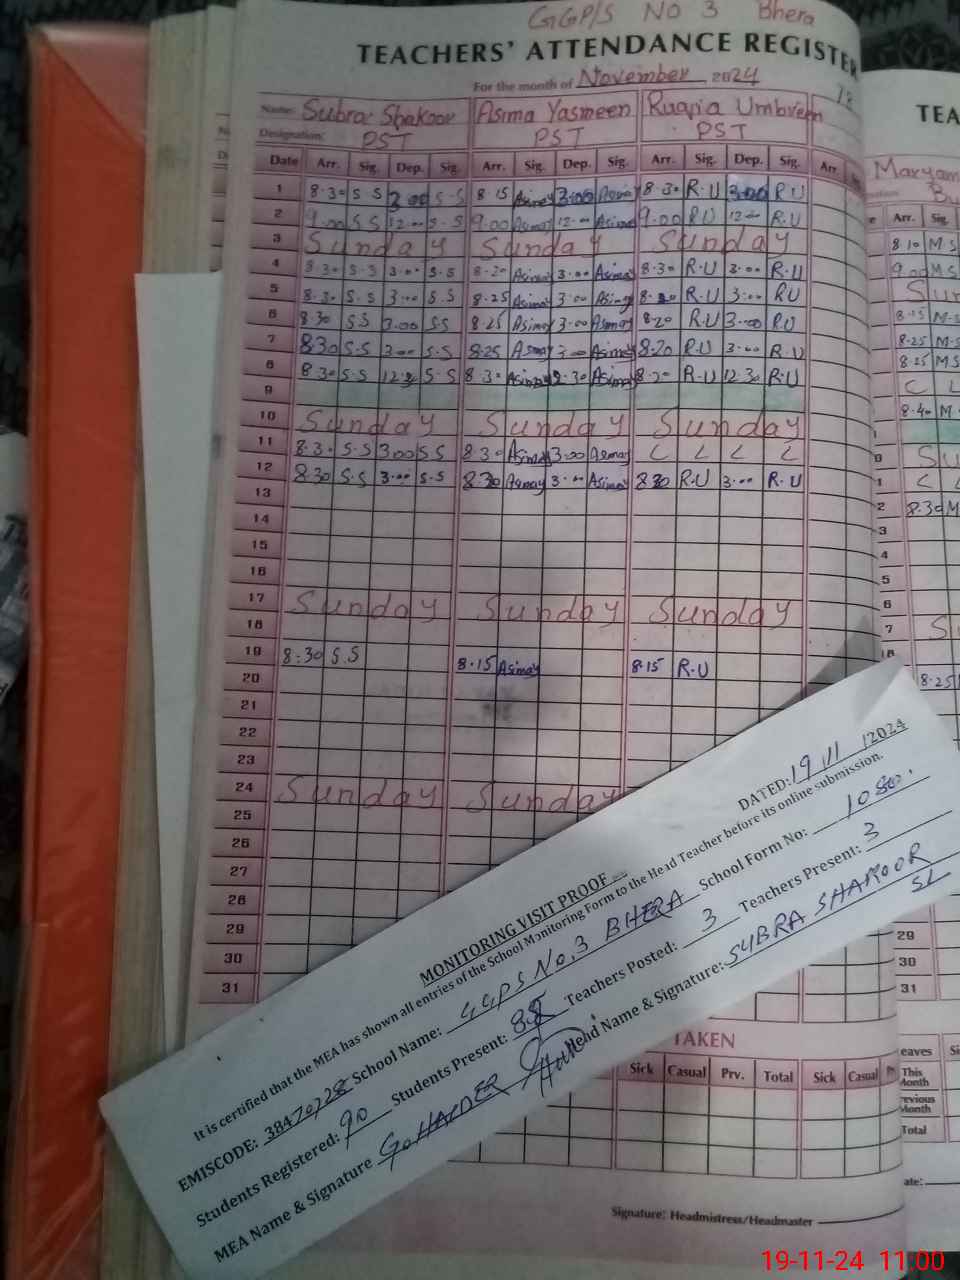 GGP/S NO 3 Bhera
TEACHERS' ATTENDANCE REGISTER
For the month of November 2024
Name: Subra Shakoor Asima Yasmeen Ruqia Umbreen
Designation: PST PST PST
Date Arr. Sig. Dep. Sig. Arr. Sig. Dep. Sig. Arr. Sig. Dep. Sig. Arr.
1 8.30 S.S 2.00 S.S 8 15 Asimay 3.00 Asimay 8.30 R.U 3.00 R U
2 9.00 S S 12.00 S.S 9.00 Asimay 12.00 Asimay 9.00 R U 12.00 R.U
3 Sunday Sunday Sunday
4 8.30 S.S 3.00 S.S 8.20 Asimay 3.00 Asimay 8.30 R.U 3.00 R.U
5 8.30 S.S 3.00 S.S 8.25 Asimay 3.00 Asimay R.U 3.00 RU
6 8.30 SS 3.00 SS 8.25 Asimay 3.00 Asimay 8.20 R.U 3.00 R.U
7 8.30 S.S 3.00 S.S 8.25 Asimay 3.00 Asimay 8.20 R.U 3.00 R.U
8 8.30 S.S 12.30 S.S 8.30 Asimay 12.30 Asimay 8.20 R.U 12.30 R.U
9
10 Sunday Sunday Sunday
11 8.30 S.S 3.00 S S 8.30 Asimay 3.00 Asmay L L L L
12 8.30 S.S 3.00 S.S 8.30 Asmay 3.00 Asimay 8.30 R.U 3.00 R.U
13
14
15
16
17 Sunday Sunday Sunday
18
19 8.30 S.S 8.15 Asimay 8.15 R.U
20
21
22
23
24 Sunday Sunday
25
26
27
28
29
30
31
TEA
Maryam
Arr. Sig.
8 10 M S
9.00 M S
Sun
8.15 M.S
8.25 M.S
8.25 MS
C L
8.40 M
Su
C L
8.30 M
S
8.25
29
30
31
MONITORING VISIT PROOF DATED: 19 11 /2024
It is certified that the MEA has shown all entries of the School Monitoring Form to the Head Teacher before its online submission.
EMISCODE: 38470228 School Name: GGPS No.3 BHERA School Form No: 1080.
Students Registered: 90 Students Present: 88 Teachers Posted: 3 Teachers Present: 3
MEA Name & Signature G HAIDER Head Name & Signature: SUBRA SHAKOOR
TAKEN
Sick Casual Prv. Total Sick Casual
eaves
This Month
revious Month
Total
Signature: Headmistress/Headmaster
ate:
19-11-24 11:00